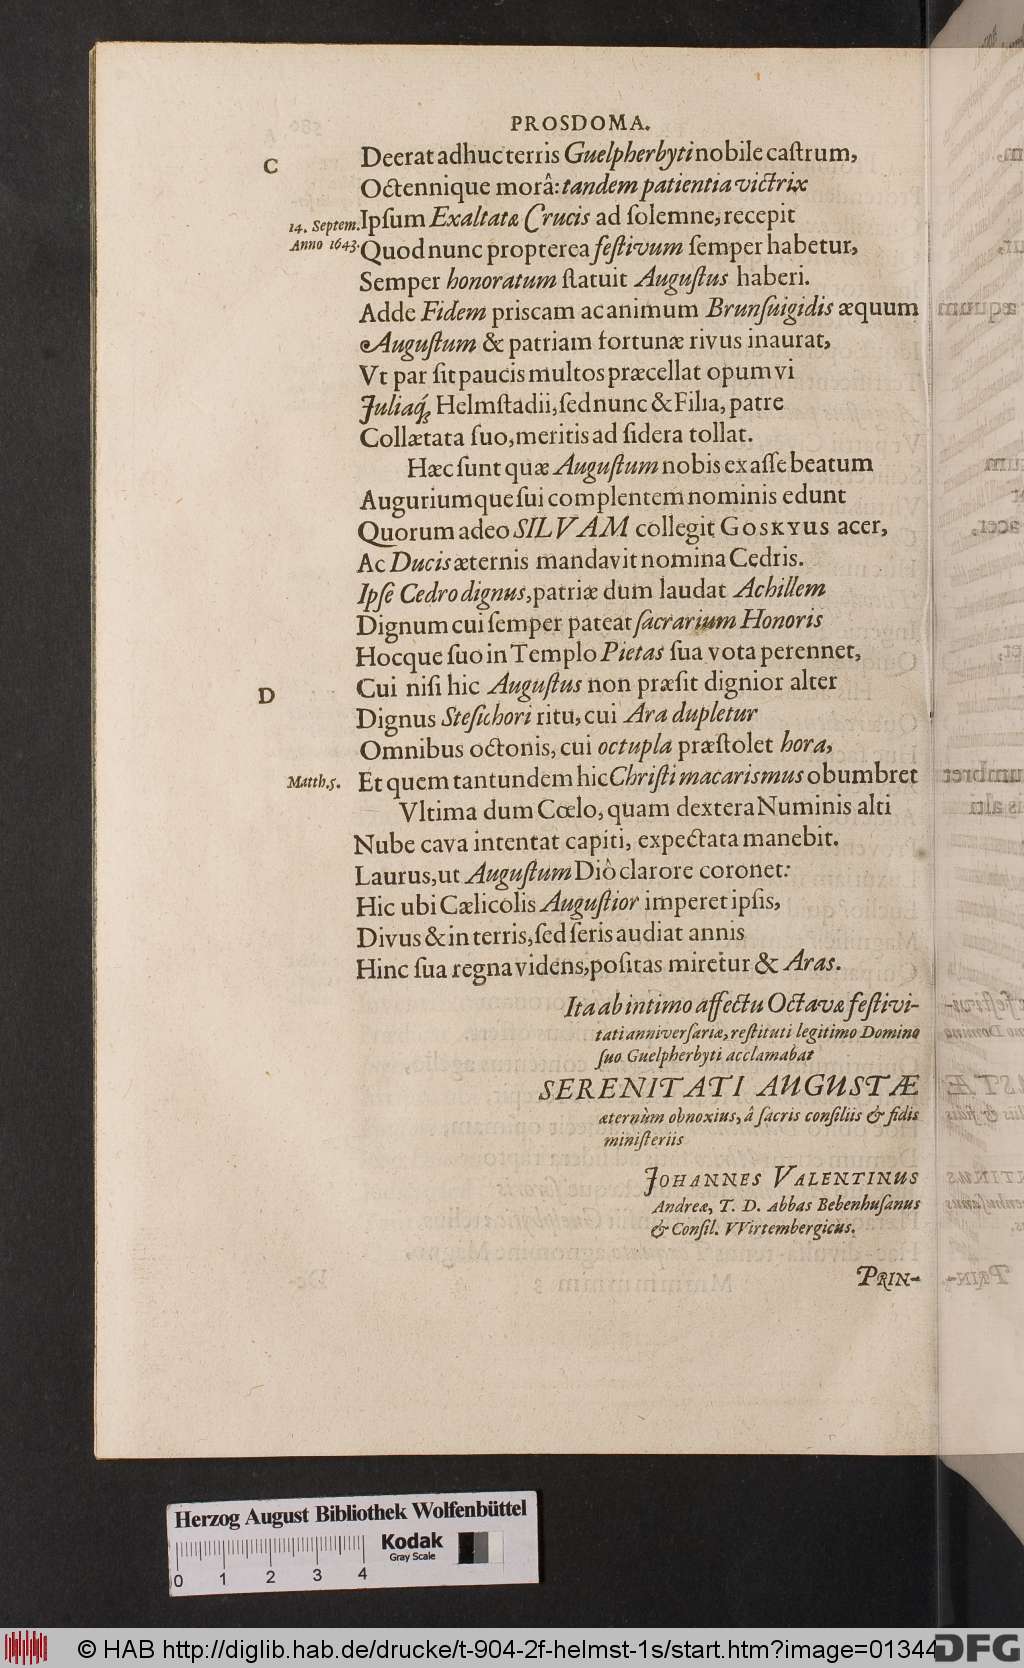 PROSDOMA.
C
Deerat adhuc terris Guelpherbyti nobile caſtrum,
Octennique morâ: tandem patientia victrix
14. Septem. Ipſum Exaltatæ Crucis ad ſolemne, recepit
Anno 1643. Quod nunc propterea feſtivum ſemper habetur,
Semper honoratum ſtatuit Auguſtus haberi.
Adde Fidem priscam ac animum Brunſuigidis æquum
Auguſtum & patriam fortunæ rivus inaurat,
Vt par ſit paucis multos præcellat opum vi
Juliaq́; Helmſtadii, ſed nunc & Filia, patre
Collætata ſuo, meritis ad ſidera tollat.
Hæc ſunt quæ Auguſtum nobis ex aſſe beatum
Auguriumque ſui complentem nominis edunt
Quorum adeo SILVAM collegit GOSKYUS acer,
Ac Ducis æternis mandavit nomina Cedris.
Ipſe Cedro dignus, patriæ dum laudat Achillem
Dignum cui ſemper pateat ſacrarium Honoris
Hocque ſuo in Templo Pietas ſua vota perennet,
D
Cui niſi hic Auguſtus non præſit dignior alter
Dignus Steſichori ritu, cui Ara dupletur
Omnibus octonis, cui octupla præſtolet hora,
Matth. 5. Et quem tantundem hic Chriſti macarismus obumbret
Vltima dum Cœlo, quam dextera Numinis alti
Nube cava intentat capiti, expectata manebit.
Laurus, ut Auguſtum Diò clarore coronet:
Hic ubi Cælicolis Auguſtior imperet ipſis,
Divus & in terris, ſed ſeris audiat annis
Hinc ſua regna videns, poſitas miretur & Aras.
Ita ab intimo affectu Octavæ feſtivi-
tati anniverſariæ, reſtituti legitimo Domino
ſuo Guelpherbyti acclamabat
SERENITATI AUGUSTÆ
æternùm obnoxius, â ſacris conſiliis & fidis
miniſteriis
JOHANNES VALENTINUS
Andreæ, T. D. Abbas Bebenhuſanus
& Conſil. VVirtembergicus.
PRIN-
Herzog August Bibliothek Wolfenbüttel
Kodak
Gray Scale
0 1 2 3 4
© HAB http://diglib.hab.de/drucke/t-904-2f-helmst-1s/start.htm?image=01344
DFG